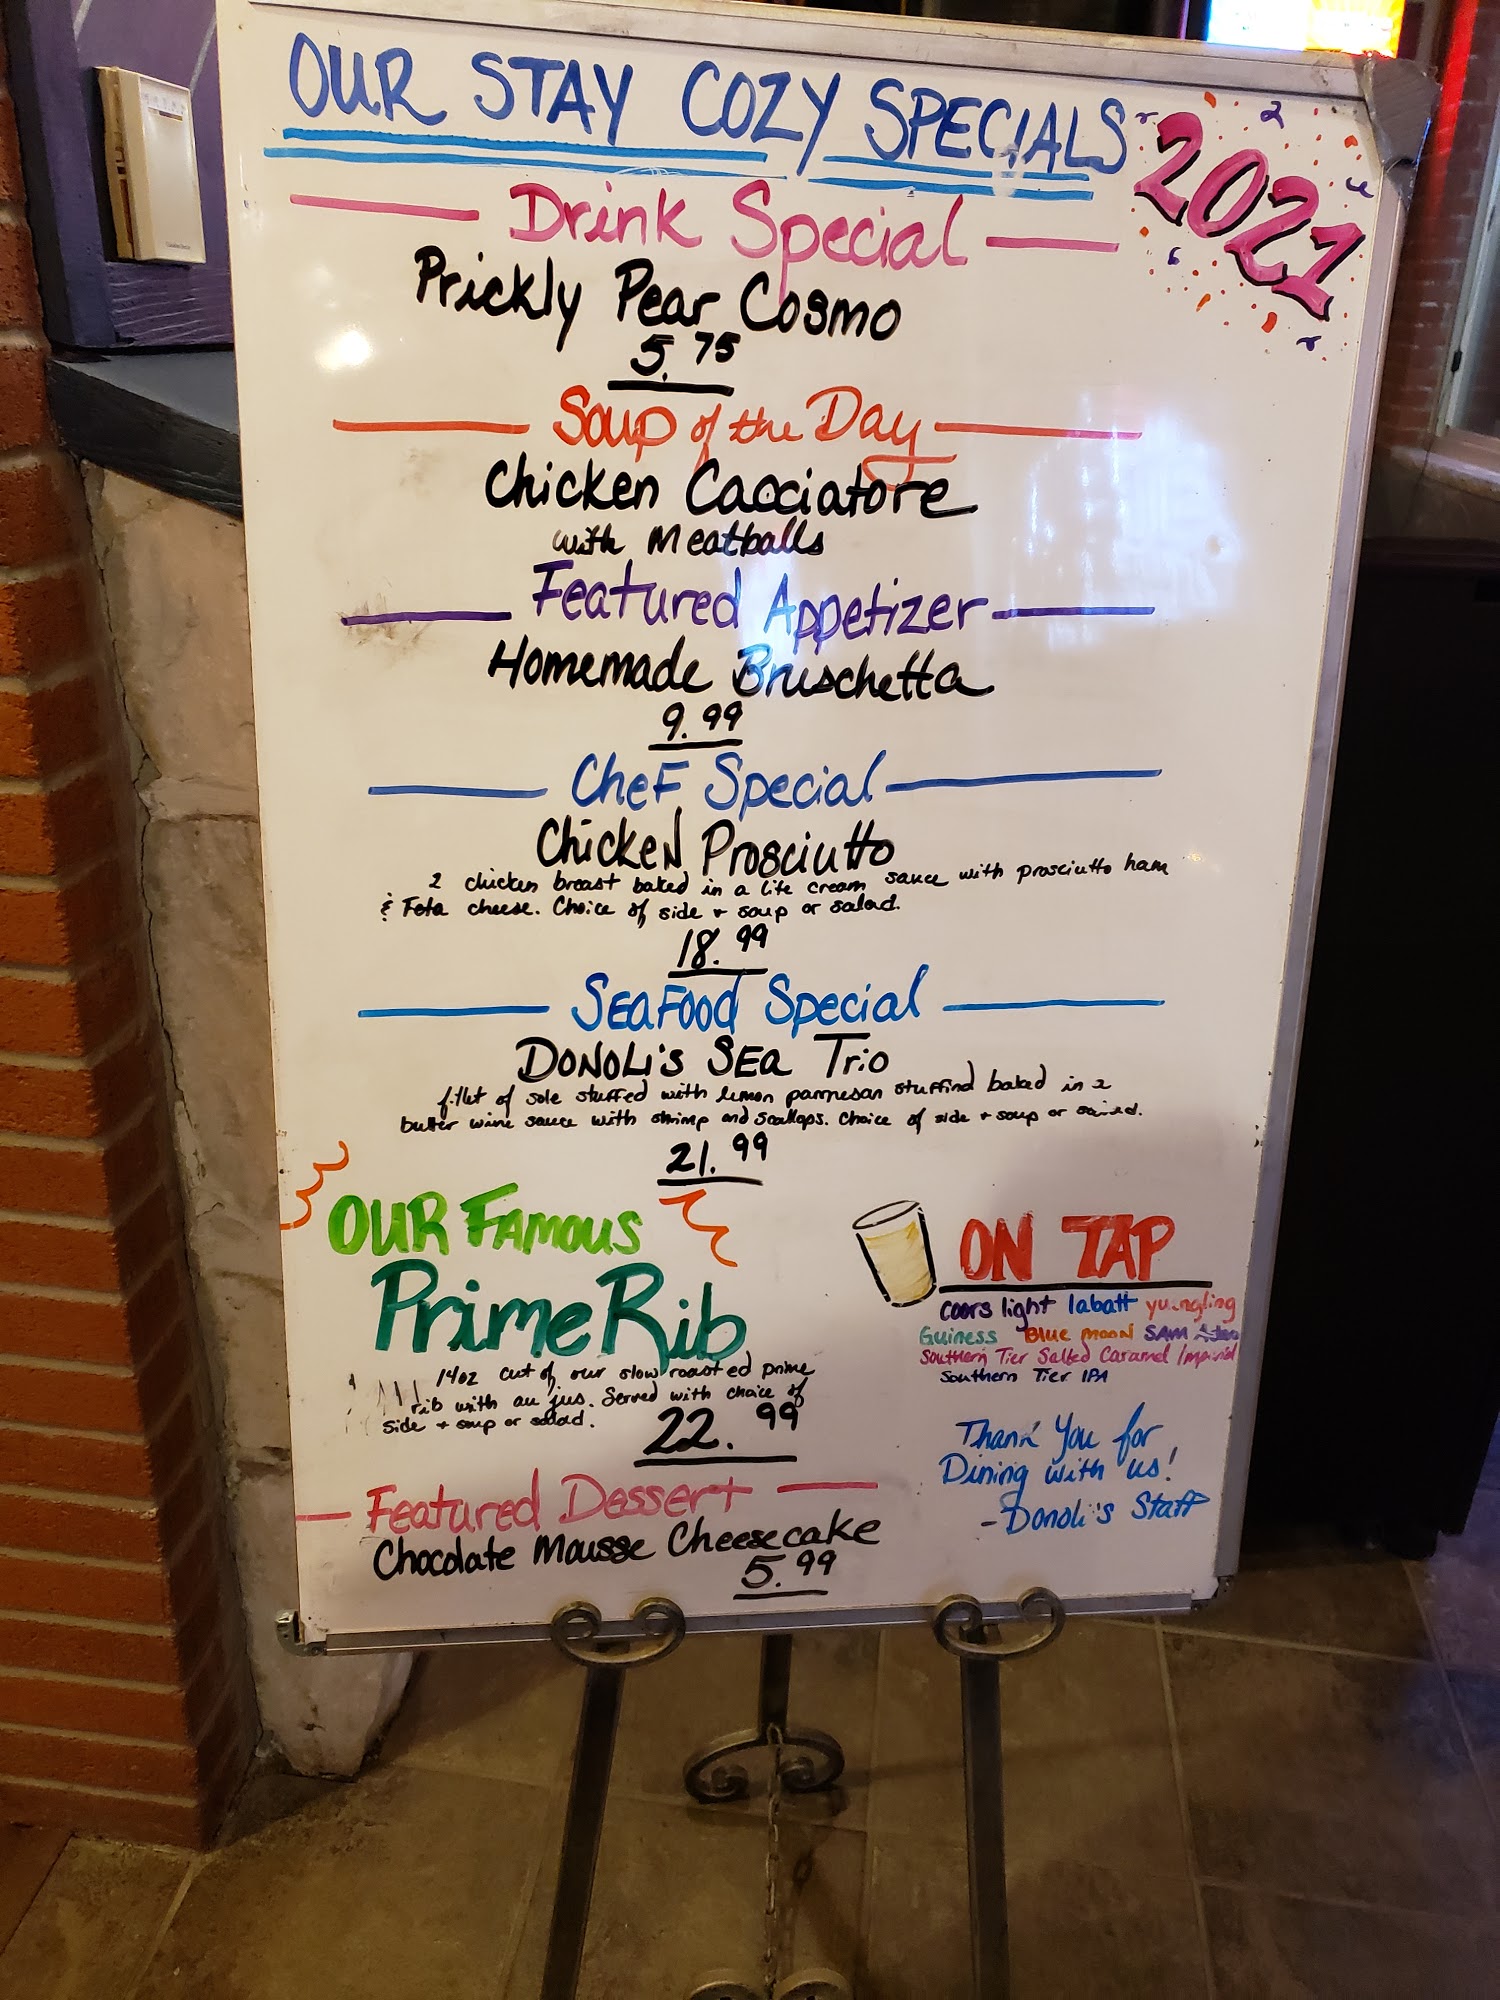 OUR STAY COZY SPECIALS
2021
Drink Special
Prickly Pear Cosmo
5.75
Soup of the Day
Chicken Cacciatore
with Meatballs
Featured Appetizer
Homemade Bruschetta
9.99
Chef Special
Chicken Prosciutto
2 chicken breast baked in a lite cream sauce with prosciutto ham
& Feta cheese. Choice of side + soup or salad.
18.99
Seafood Special
Donoli's Sea Trio
fillet of sole stuffed with lemon parmesan stuffind baked in a
butter wine sauce with shrimp and scallops. Choice of side + soup or salad.
21.99
OUR FAMOUS
Prime Rib
14oz cut of our slow roasted prime
rib with au jus. Served with choice of
side + soup or salad.
22.99
Featured Dessert
Chocolate Mousse Cheesecake
5.99
ON TAP
coors light labatt yuengling
Guiness Blue moon SAM
Southern Tier Salted Caramel Imperial
Southern Tier IPA
Thank You for
Dining with us!
-Donoli's Staff